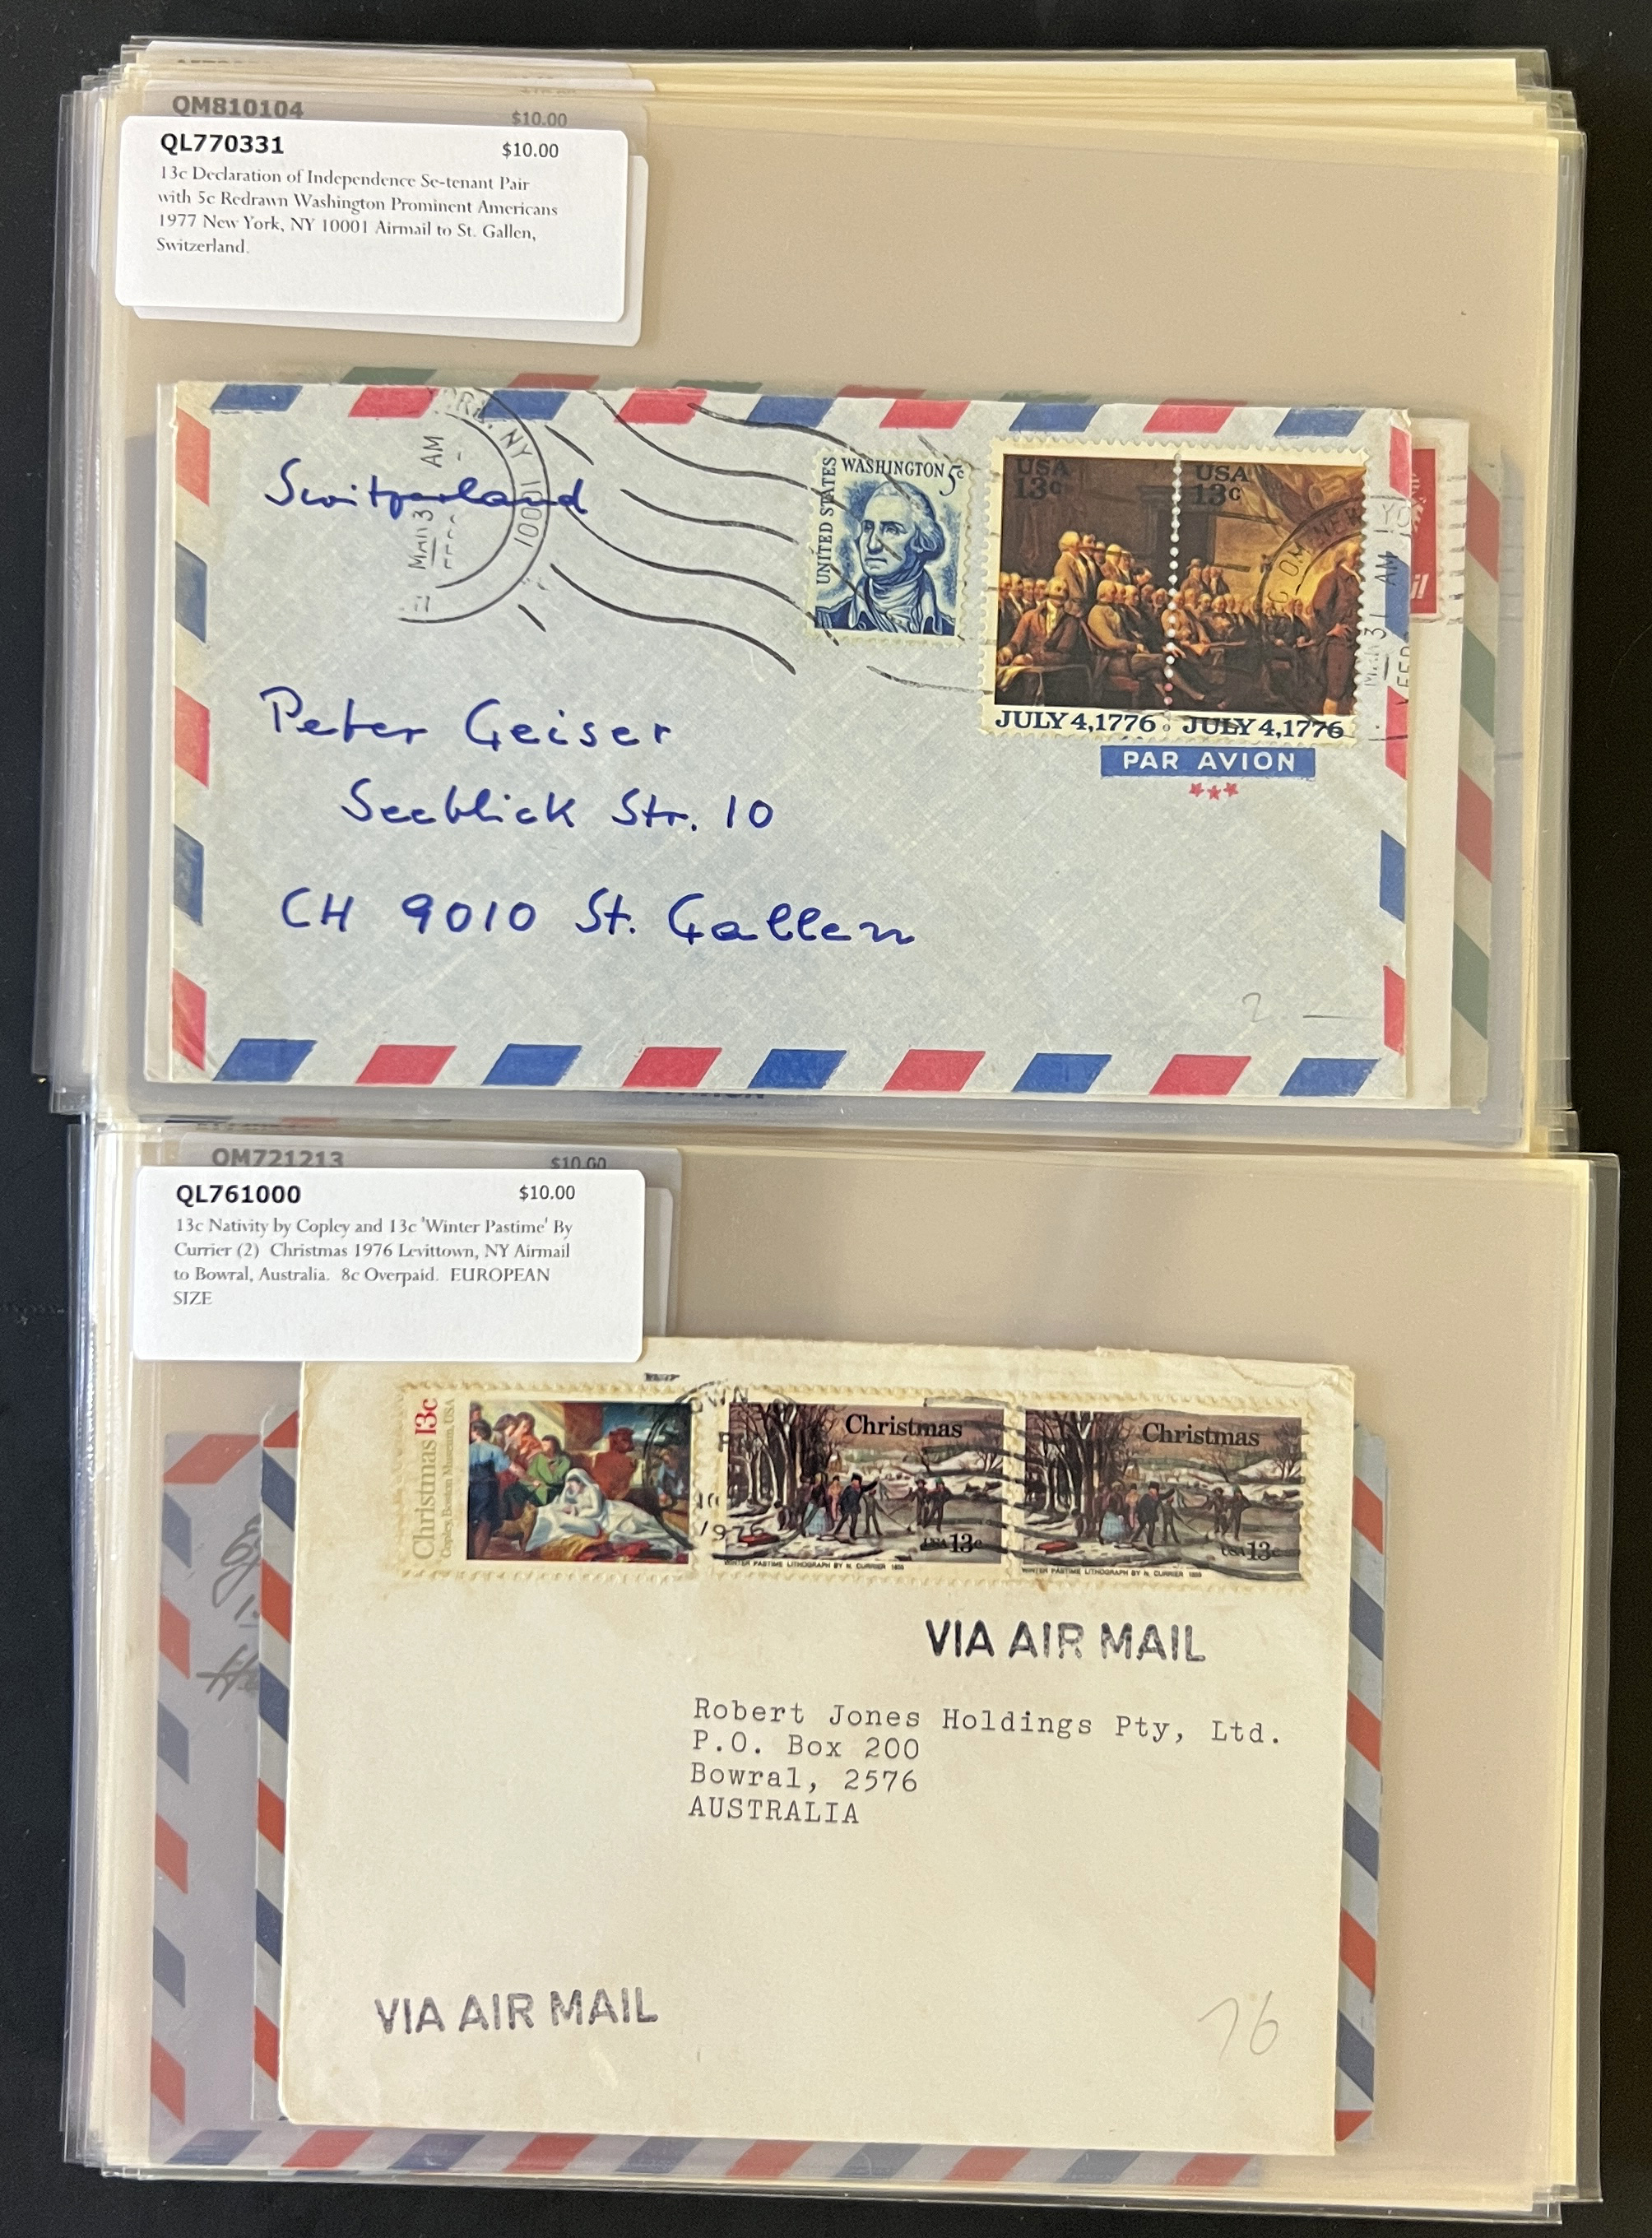 QM810104 $10.00
QL770331 $10.00
13c Declaration of Independence Se-tenant Pair
with 5c Redrawn Washington Prominent Americans
1977 New York, NY 10001 Airmail to St. Gallen,
Switzerland.
NY 10001
AM
Switzerland
UNITED STATES
WASHINGTON 5c
USA
13c
USA
13c
JULY 4,1776
JULY 4,1776
MAR 31 AM
PAR AVION
Peter Geiser
Seeblick Str. 10
CH 9010 St. Gallen
2 —
QM721213 $10.00
QL761000 $10.00
13c Nativity by Copley and 13c 'Winter Pastime' By
Currier (2) Christmas 1976 Levittown, NY Airmail
to Bowral, Australia. 8c Overpaid. EUROPEAN
SIZE
Christmas 13c
Copley, Boston Museum, USA
OWN
1976
Christmas
USA 13c
WINTER PASTIME LITHOGRAPH BY N. CURRIER 1855
Christmas
USA 13c
WINTER PASTIME LITHOGRAPH BY N. CURRIER 1855
VIA AIR MAIL
Robert Jones Holdings Pty, Ltd.
P.O. Box 200
Bowral, 2576
AUSTRALIA
VIA AIR MAIL
76